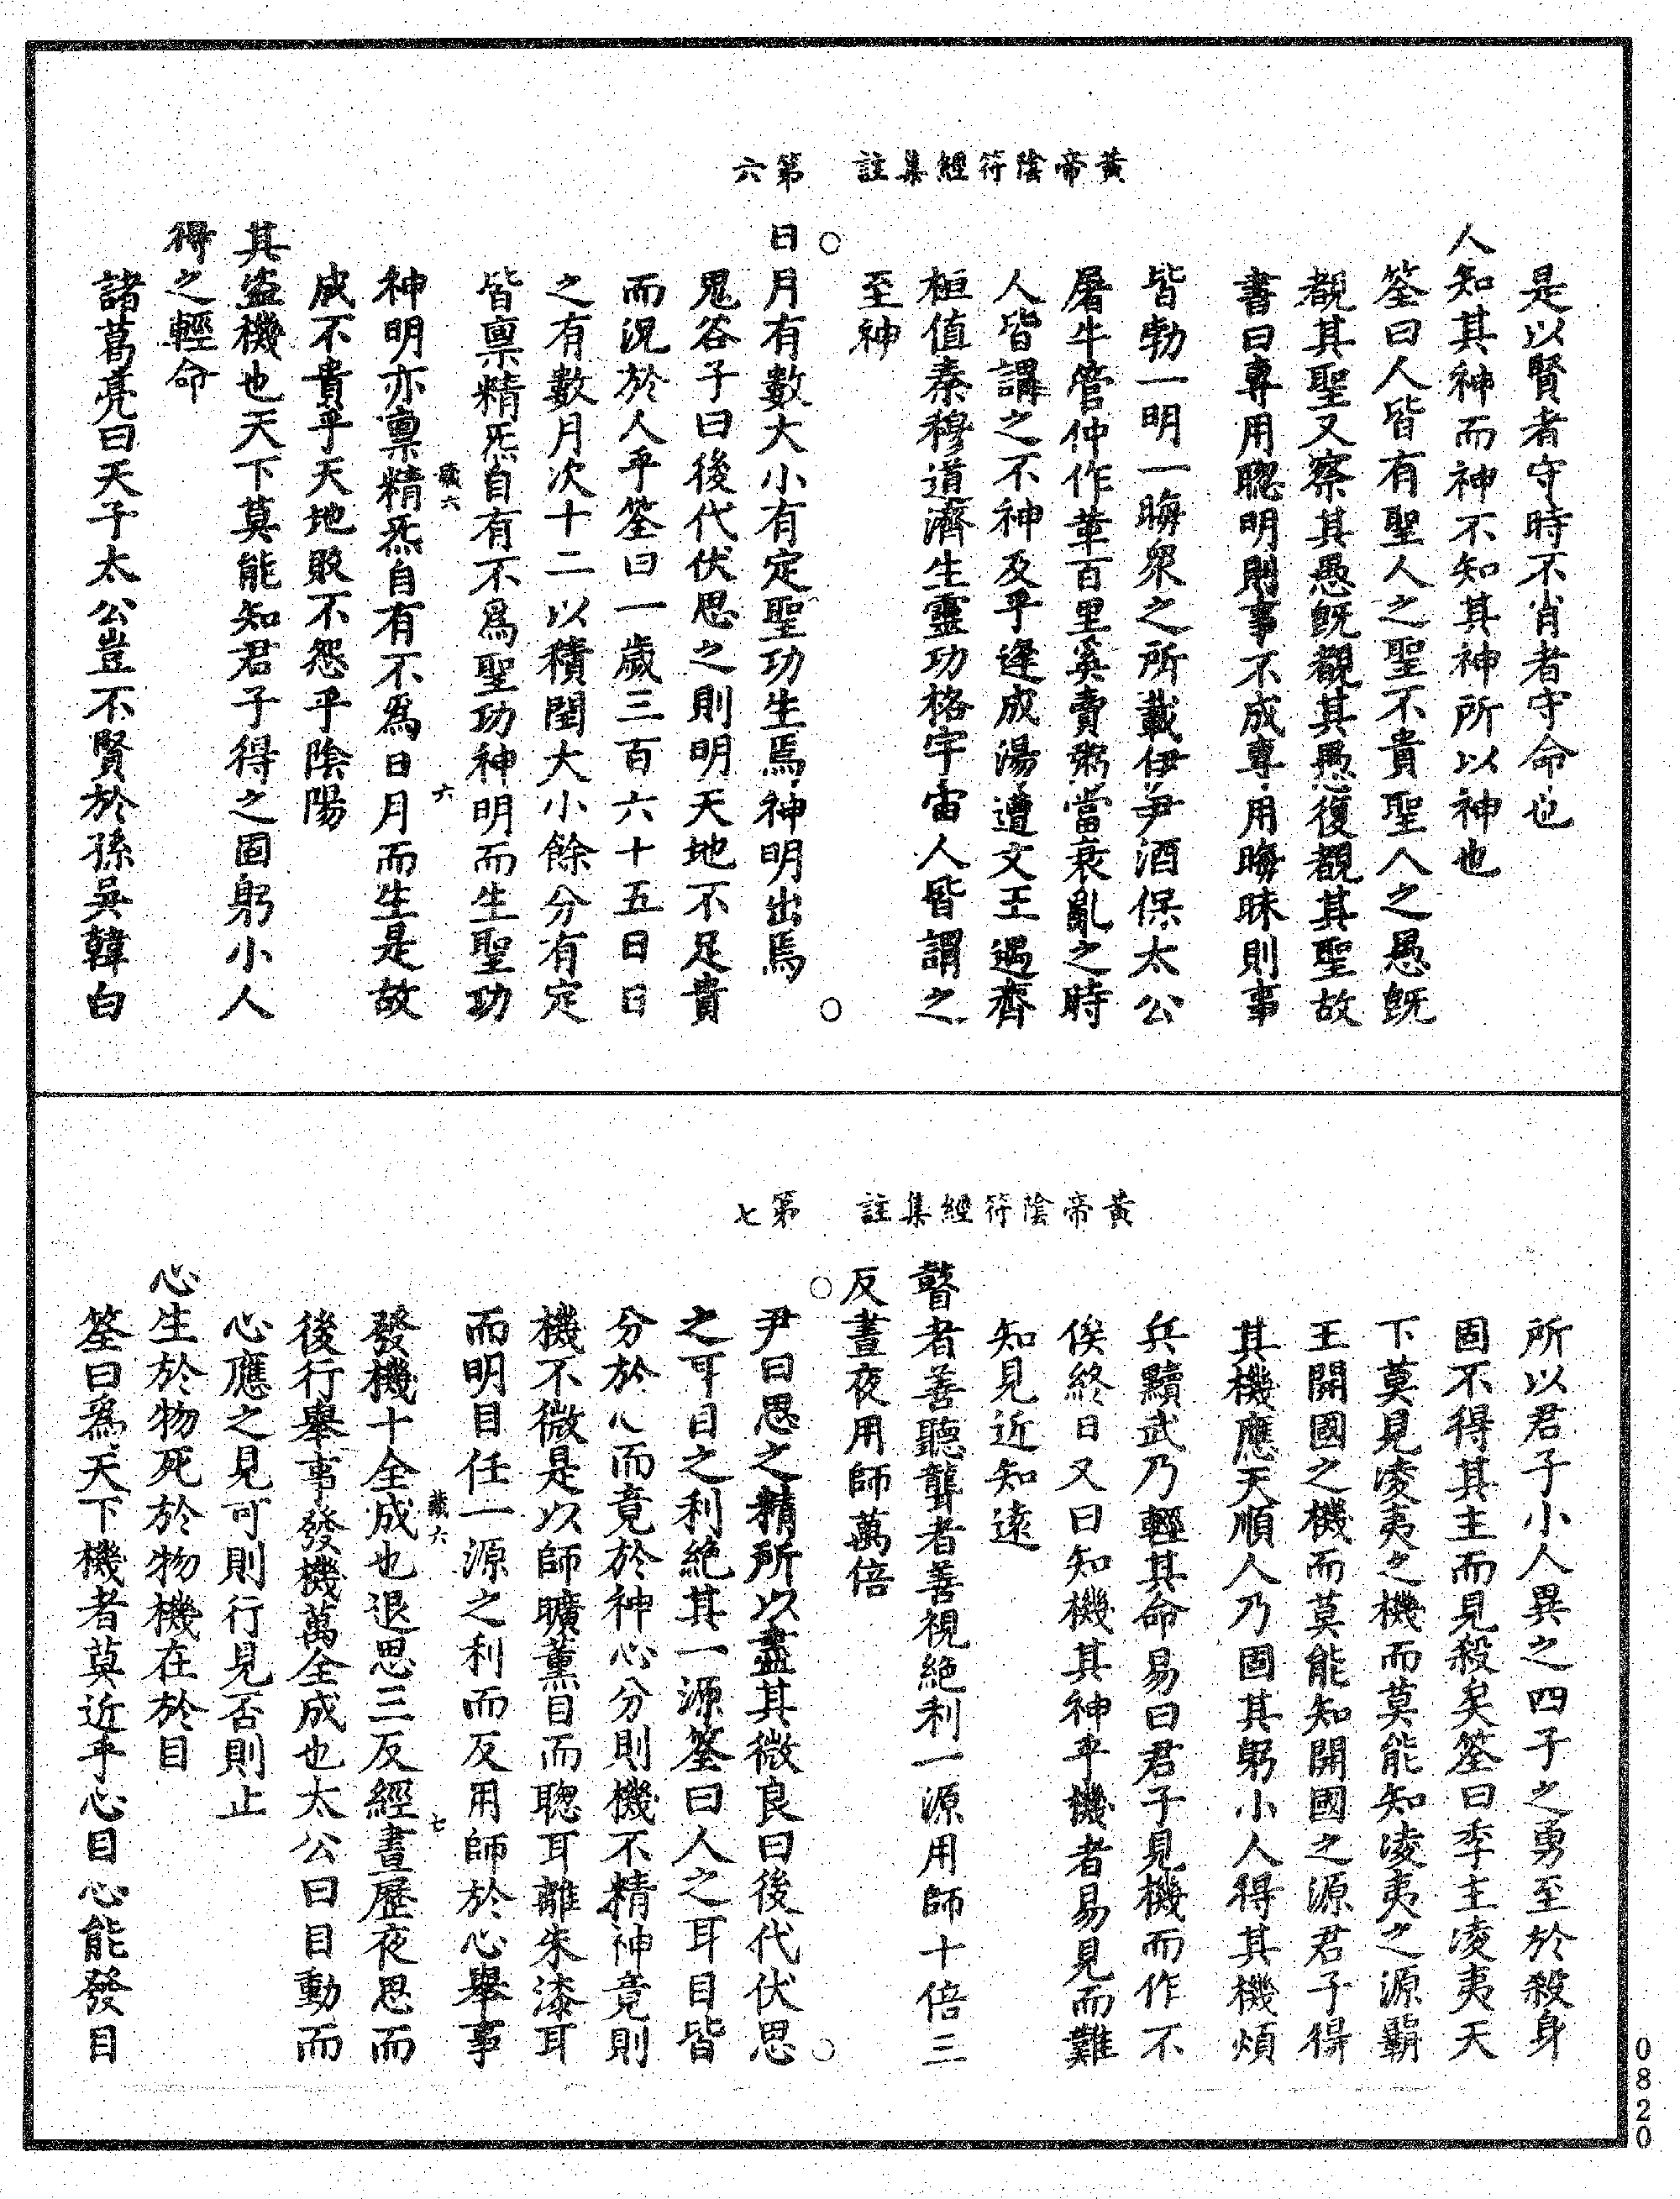 黃帝陰符經集註　第六
是以賢者守時不肖者守命也
人知其神而神不知其神所以神也
筌曰人皆有聖人之聖不貴聖人之愚既
覩其聖又察其愚既觀其愚復覩其聖故
書曰專用聰明則事不成專用晦昧則事
皆勃一明一晦眾之所載伊尹酒保太公
屠牛管仲作革百里奚賣粥當衰亂之時
人皆謂之不神及乎逢成湯遭文王遇齊
桓值秦穆道濟生靈功格宇宙人皆謂之
至神
○　○
日月有數大小有定聖功生焉神明出焉
鬼谷子曰後代伏思之則明天地不足貴
而況於人乎筌曰一歲三百六十五日日
之有數月次十二以積閏大小餘分有定
皆稟精炁自有不爲聖功神明而生聖功
藏六　六
神明亦稟精炁自有不爲日月而生是故
成不貴乎天地敗不怨乎陰陽
其盜機也天下莫能知君子得之固躬小人
得之輕命
諸葛亮曰天子太公豈不賢於孫吳韓白
黃帝陰符經集註　第七
所以君子小人異之四子之勇至於殺身
固不得其主而見殺矣筌曰季主凌夷天
下莫見凌夷之機而莫能知凌夷之源霸
王開國之機而莫能知開國之源君子得
其機應天順人乃固其躬小人得其機煩
兵黷武乃輕其命易曰君子見機而作不
俟終日又曰知機其神乎機者易見而難
知見近知遠
瞽者善聽聾者善視絕利一源用師十倍三
反晝夜用師萬倍
○　○
尹曰思之精所以盡其微良曰後代伏思
之耳目之利絕其一源筌曰人之耳目皆
分於心而竟於神心分則機不精神竟則
機不微是以師曠薰目而聰耳離朱漆耳
而明目任一源之利而反用師於心舉事
藏六　七
發機十全成也退思三反經晝歷夜思而
後行舉事發機萬全成也太公曰目動而
心應之見可則行見否則止
心生於物死於物機在於目
筌曰爲天下機者莫近乎心目心能發目
0820